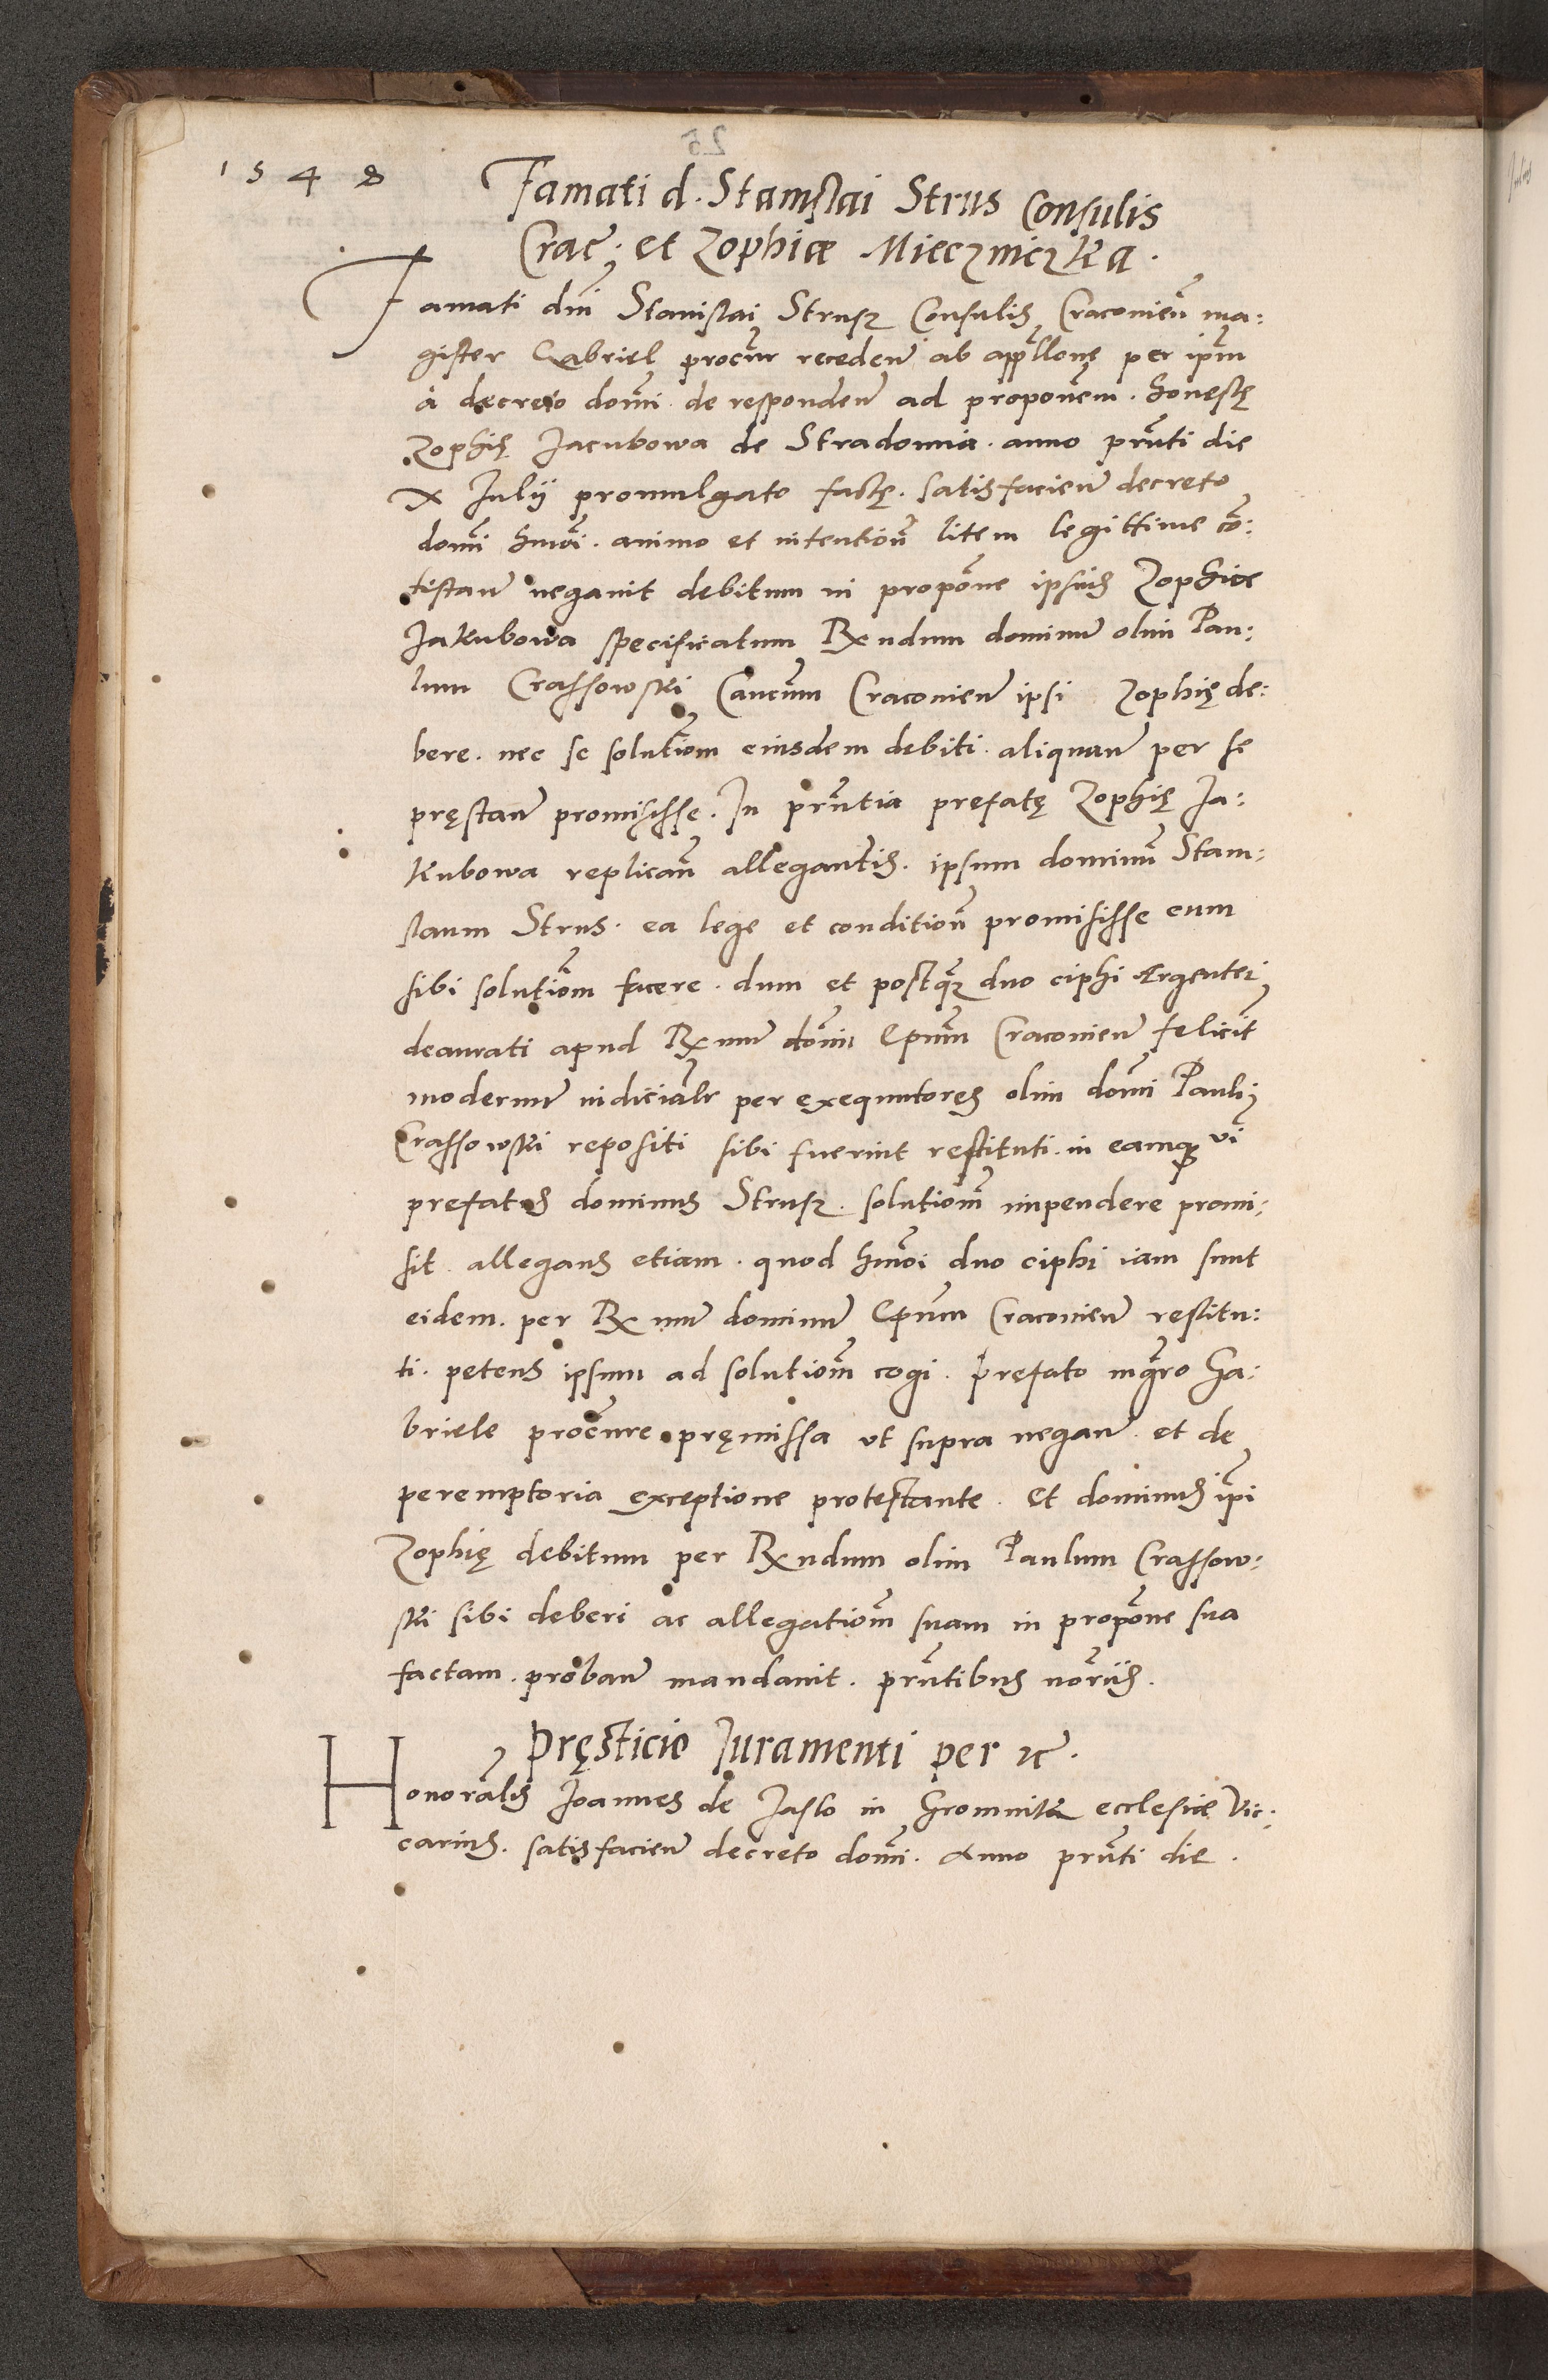 1548
Famati d. Stanislai Strus Consulis
Crac: et Zophiæ Mieczniczka.
Famati dni Stanislai Strusz Consulis Cracovien ma:
gister Gabriel procur receden ab appllone per ipm
à decreto domi. de responden ad proponem. honestę
Zophię Jacubowa de Stradomia. anno prnti die
x Julij promulgato factę. satisfacien decreto
domi hmoi. animo et intention litem legittime co:
tistan negavit debitum in propone ipsius Zophiæ
Jakubowa specificatum Rndum dominu olim Pau:
lum Crassowski Cancum Cracovien ipsi Zophię de:
bere. nec se solutiom eiusdem debiti. aliquan per se
pręstan promisisse. In prntia prefatę Zophię Ja:
kubowa replican allegantis. ipsum dominu Stani:
slaum Strus. ea lege et condition promisisse eum
sibi solutiom facere. dum et postq duo ciphi Argentei
deaurati apud Rmu domin Epum Cracovien felicit
modernu iudicialr per exequutores olim domi Pauli
Crassowski repositi sibi fuerint restituti. in eamq vi
prefatus dominus Strusz. solutiom impendere promi:
sit. allegans etiam. quod hmoi duo ciphi iam sunt
eidem. per Rmu dominu Epum Cracovien restitu:
ti. petens ipsum ad solutiom cogi. Pręfato mgro Ga:
briele procure pręmissa ut supra negan. et de
peremptoria exceptione protestante. Et dominus ipi
Zophię debitum per Rndum olim Paulum Crassow:
ski sibi deberi ac allegatiom suam in propone sua
factam. proban mandavit. prntibus noriis.
Pręsticio Juramenti per etc.
Honoralis Joannes de Jaslo in Gromnik ecclesiæ Vic:
carius. satisfacien decreto domi. Anno prnti die.